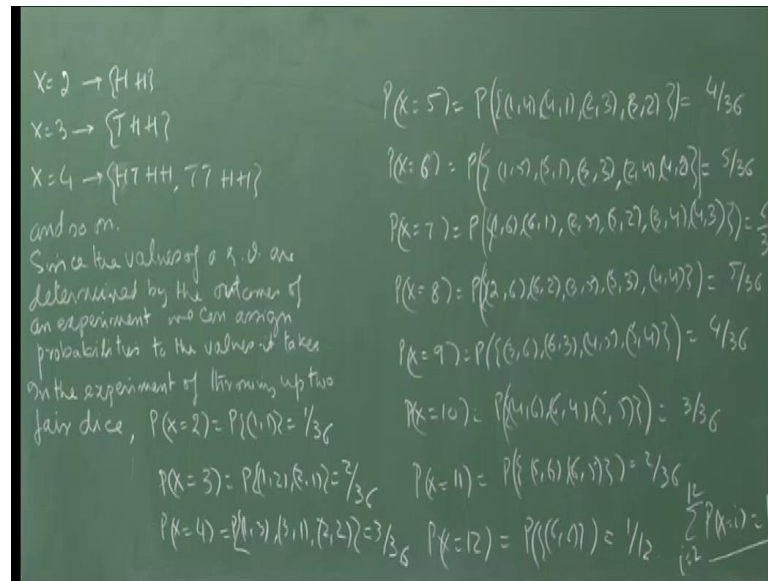 X=2 → {HH}
X=3 → {THH}
X=4 → {HTHH, TTHH}
and so on.
Since the values of a r.v. are
determined by the outcomes of
an experiment we can assign
probabilities to the values it takes
In the experiment of throwing up two
fair dice, P(X=2)= P{(1,1)}= 1/36
P(X=3)= P{(1,2),(2,1)}= 2/36
P(X=4) = P{(1,3),(3,1),(2,2)}= 3/36
P(X=5)= P({(1,4),(4,1),(2,3),(3,2)})= 4/36
P(X=6) = P({(1,5),(5,1),(3,3),(2,4),(4,2)})= 5/36
P(X=7)= P({(1,6),(6,1),(2,5),(5,2),(3,4),(4,3)})= 6/3
P(X=8)= P({(2,6),(6,2),(3,5),(5,3),(4,4)})= 5/36
P(X=9)= P({(3,6),(6,3),(4,5),(5,4)})= 4/36
P(X=10)= P({(4,6),(6,4),(5,5)})= 3/36
P(X=11)= P({(5,6),(6,5)})= 2/36
P(X=12) = P({(6,6)}) = 1/12. ∑_{i=2}^{12} P(X=i)=1